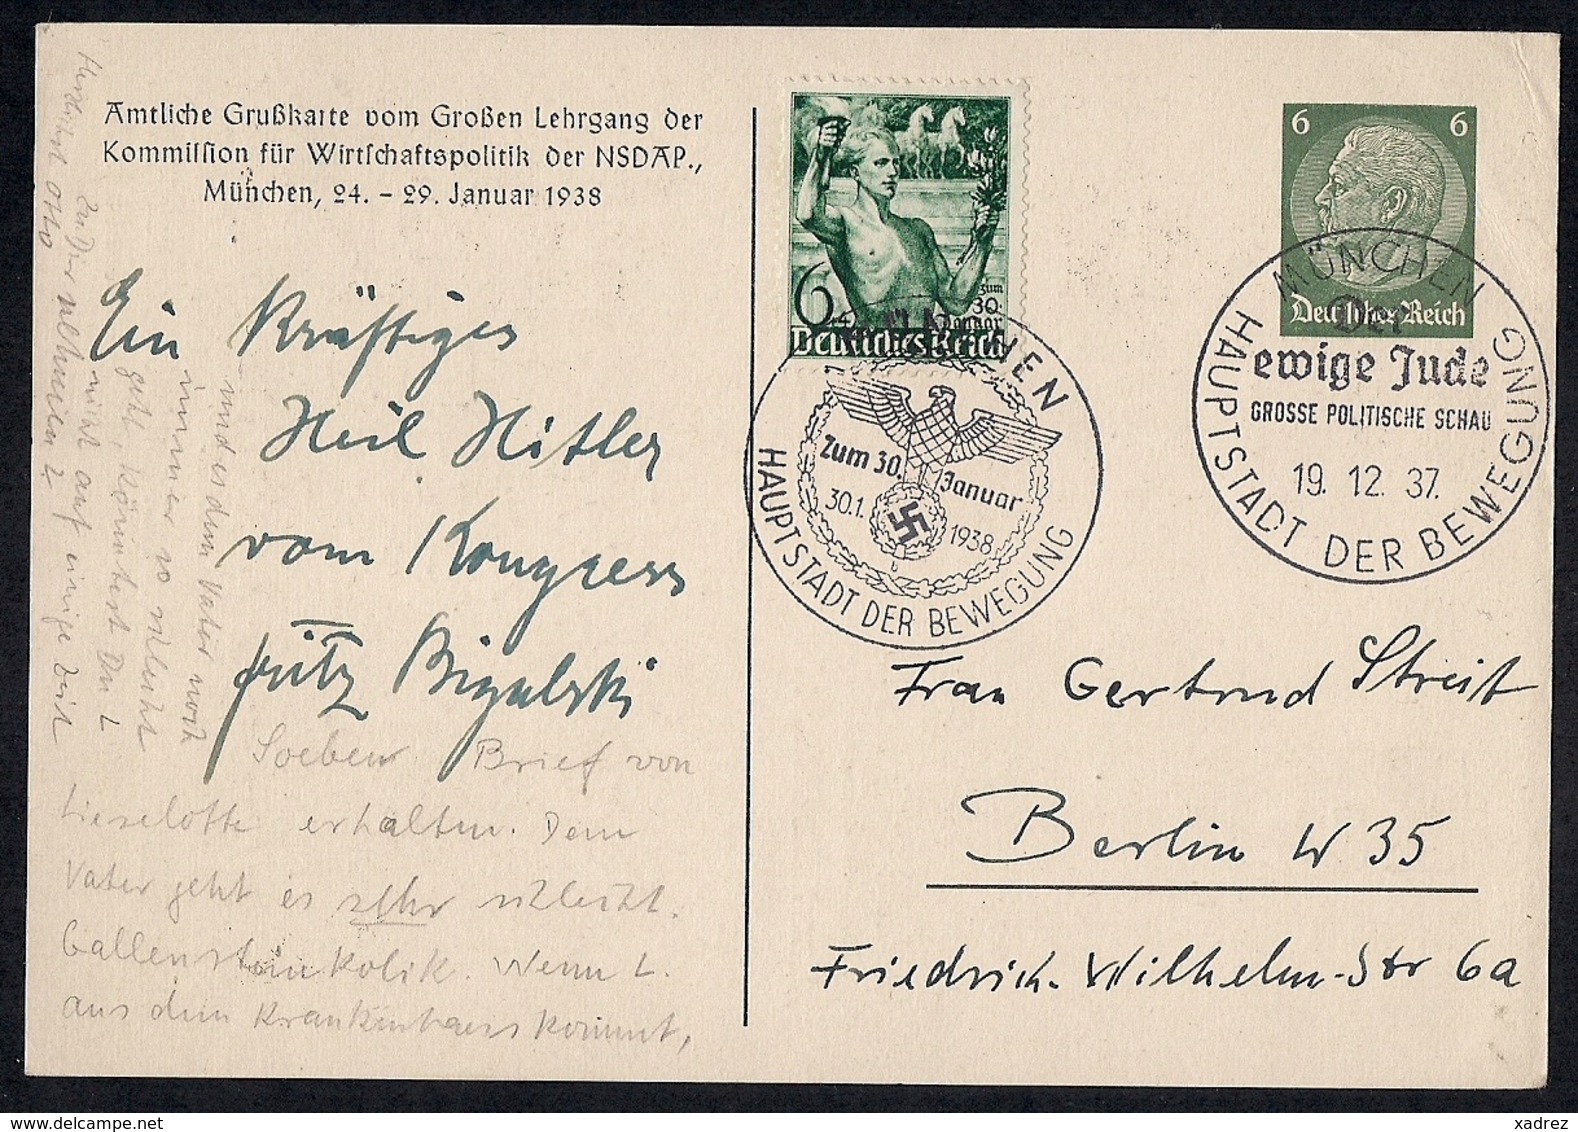 Amtliche Grußkarte vom Großen Lehrgang der
Kommission für Wirtschaftspolitik der NSDAP.,
München, 24. - 29. Januar 1938
Ein kräftiges
Heil Hitler
vom Kongress
Fritz
Soeben Brief von
Lieselotte erhalten. Dem
Vater geht es sehr schlecht.
Gallensteinkolik. Wenn L.
aus dem Krankenhaus kommt,
und es dem Vater noch
immer so schlecht
geht, könntest Du L
nicht auf einige Zeit
zu Dir nehmen?
Herzlichst Otto
6
zum
30.
Januar
Deutsches Reich
MÜNCHEN
Zum 30. Januar
30.1. 1938
HAUPTSTADT DER BEWEGUNG
6 6
Deutsches Reich
MÜNCHEN
Der
ewige Jude
GROSSE POLITISCHE SCHAU
19. 12. 37.
HAUPTSTADT DER BEWEGUNG
Frau Gertrud Streit
Berlin W 35
Friedrich-Wilhelm-Str 6a
www.delcampe.net
xadrez